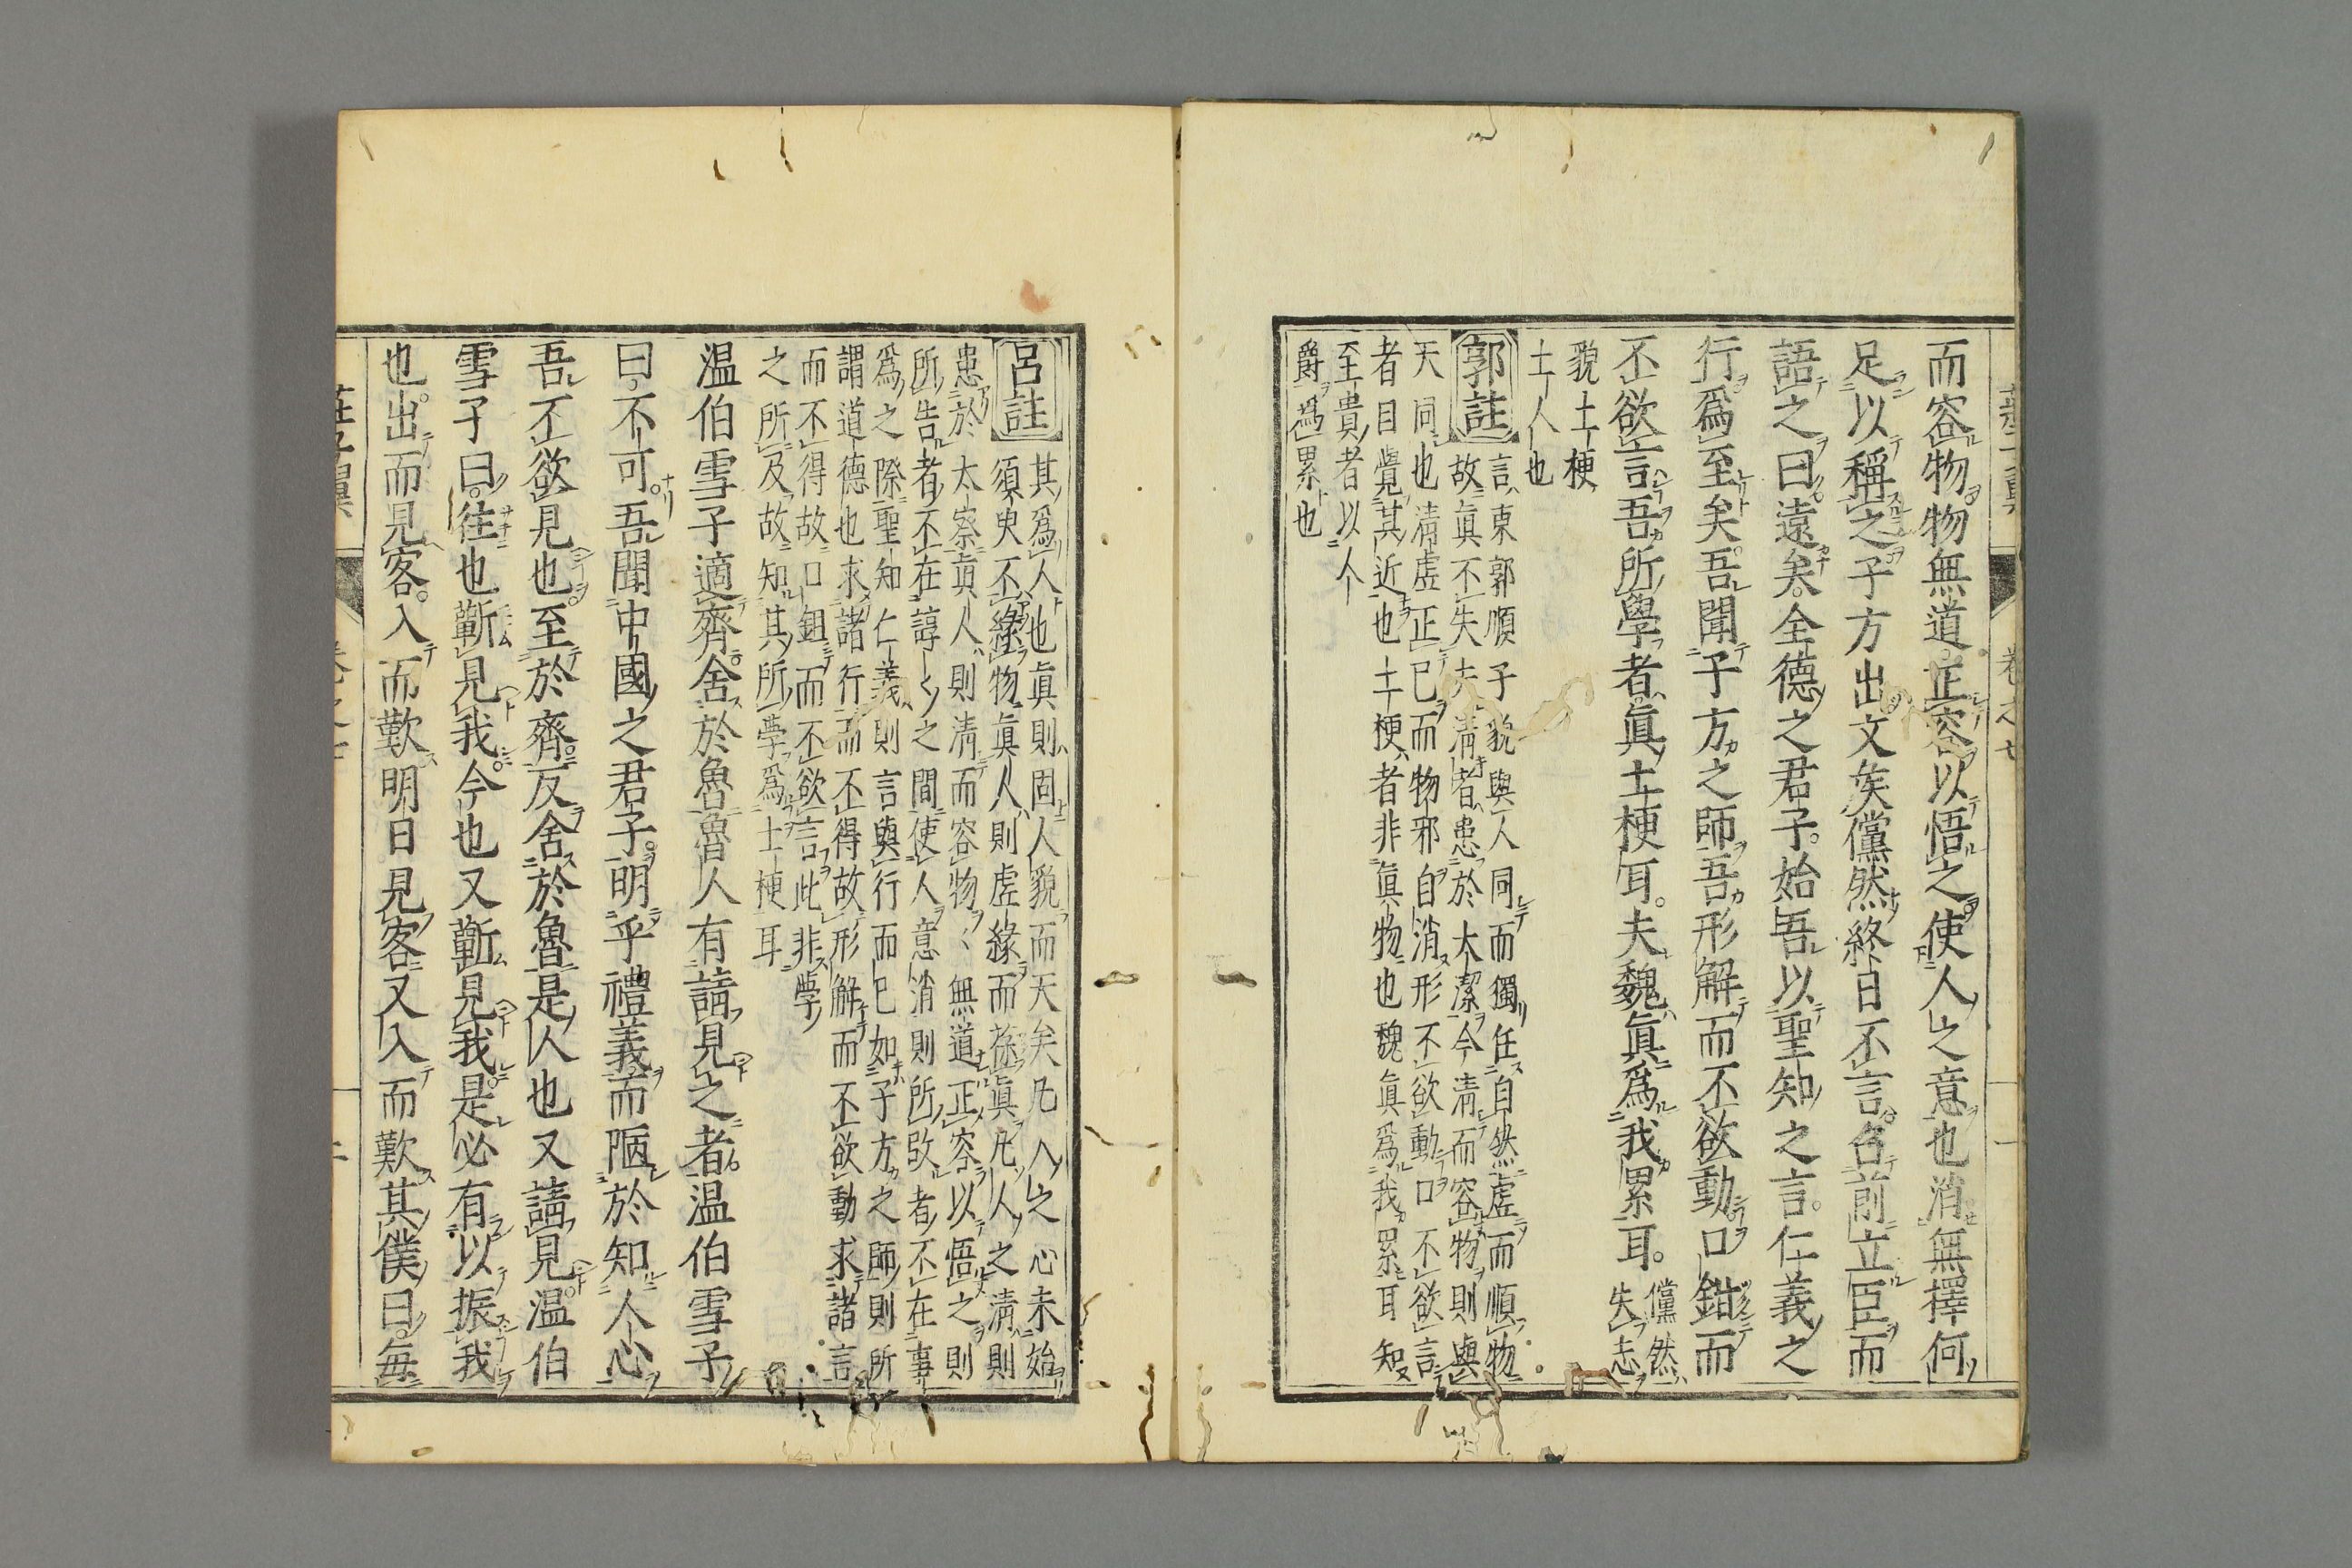 而容物物無道正容以悟之使人之意也消無擇何
足以稱之子方出文矦儻然終日不言召前立臣而
語之曰遠矣全德之君子始吾以聖知之言仁義之
行爲至矣吾聞子方之師吾形解而不欲動口鉗而
不欲言吾所學者眞土梗耳夫魏眞爲我累耳
儻然
失志
貌土梗
土人也
郭註
言東郭順子貌與人同而獨任自然虛而順物
故眞不失夫清者患於太潔今清而容物則與
天同也清虛正己而物邪自消形不欲動口不欲言
者自覺其近也土梗者非眞物也魏眞爲我累耳知
至貴者以人
爵爲累也
呂註
其爲人也眞則固人貌而天矣凡人之心未始
須臾不緣物眞人則虛緣而葆眞凡人之清則
患於太察眞人則清而容物〻無道正容以悟之則
所告者不在諄〱之間使人意消則所改者不在事
爲之際聖知仁義則言與行而已如子方之師則所
謂道德也求諸行而不得故形解而不欲動求諸言
而不得故口鉗而不欲言此非學
之所及故知其所學爲土梗耳
温伯雪子適齊舍於魯魯人有請見之者温伯雪子
曰不可吾聞中國之君子明乎禮義而陋於知人心
吾不欲見也至於齊反舍於魯是人也又請見温伯
雪子曰往也蘄見我今也又蘄見我是必有以振我
也出而見客入而歎明日見客又入而歎其僕曰每